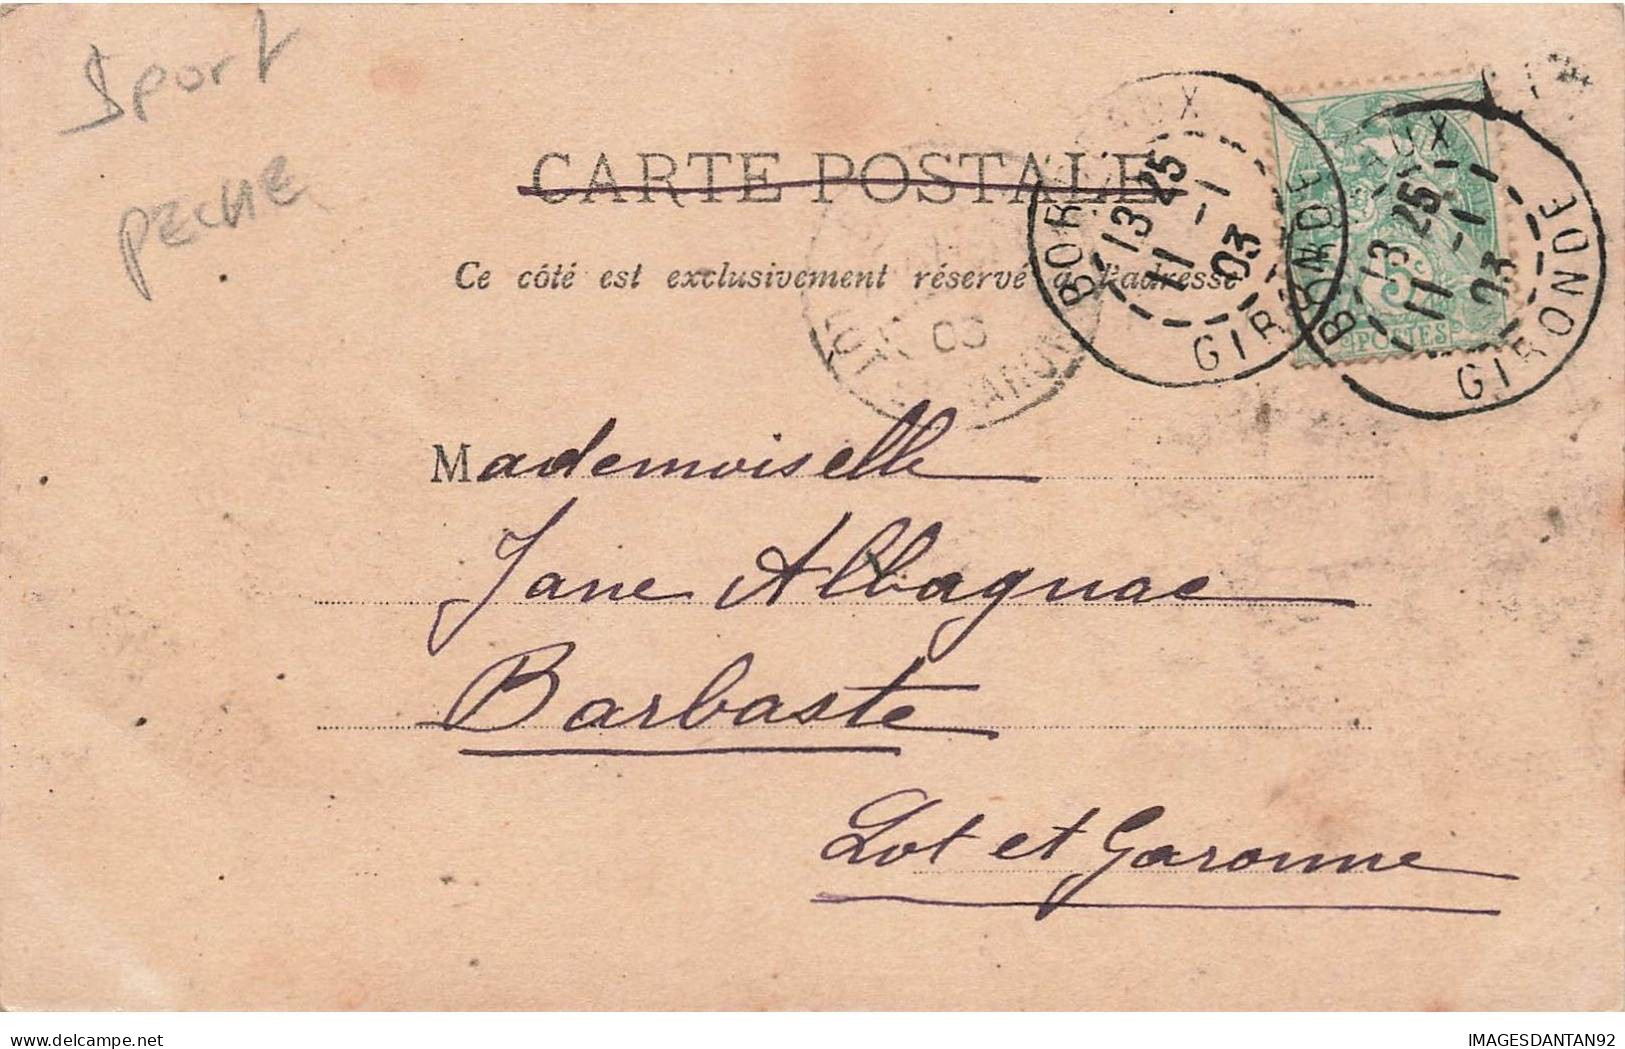 Sport
PECHE
CARTE POSTALE
Ce côté est exclusivement réservé à l'adresse
BORDEAUX
13 25
11 -1
03
GIRONDE
BORDEAUX
13 25
11 -1
03
GIRONDE
5c
POSTES
03
LOT GARONNE
Mademoiselle
Jane Albagnac
Barbaste
Lot et Garonne
delcampe.net
IMAGESDANTAN92